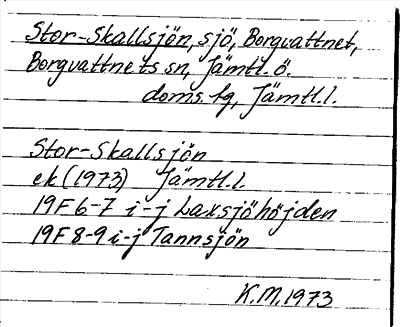 Stor-Skallsjön, sjö, Borgvattnet,
Borgvattnets sn, Jämtl. ö.
doms. tg, Jämtl. l.
Stor-Skallsjön
ek (1973) Jämtl. l.
19F 6-7 i-j Laxsjöhöjden
19F 8-9 i-j Tannsjön
K.M. 1973